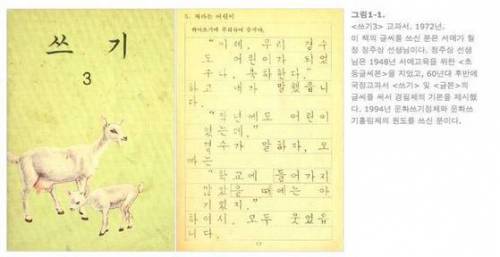 쓰 기
3
5. 자라는 어린이
"이제, 우리 경수
도 어린이가 되었
구나. 축하한다."
하고 내가 말했읍니
다.
어린이
는데."
경수가 말하자,
는
"학교에 들어가지
않았을 때에는 아
기였지."
하여서, 모두 웃었읍
니다.
그림1-1.
<쓰기3> 교과서, 1972년.
이 책의 글씨를 쓰신 분은 서예가 월
정 정주상 선생님이다. 정주상 선생
님은 1948년 서예교육을 위한 <초
등글씨본>을 지었고, 60년대 후반에
국정교과서 <쓰기> 및 <글본>의
글씨를 써서 경필체의 기본을 제시했
다. 1994년 문화쓰기정체와 문화쓰
기흘림체의 원도를 쓰신 분이다.